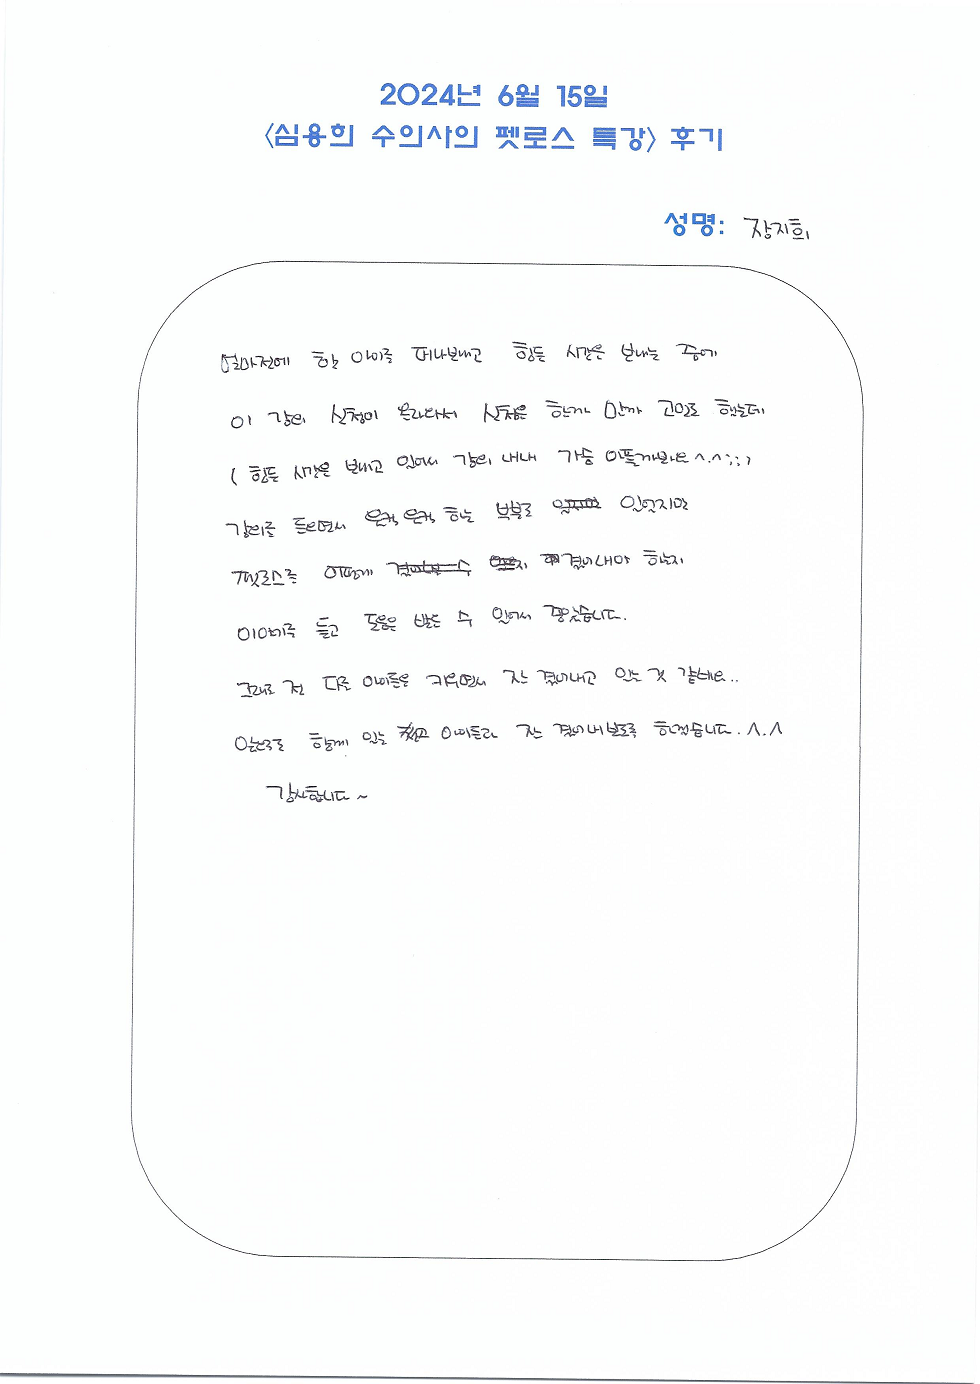 2024년 6월 15일
<심용희 수의사의 펫로스 특강> 후기
성명: 장지희
얼마전에 한 아이를 떠나보내고 힘든 시간을 보내는 중에
이 강의 신청이 올라와서 신청을 할까 말까 고민도 했는데
( 힘든 시간을 보내고 있어서 강의 내내 가슴 아플까봐요 ^.^;;;)
강의를 들으면서 울컥울컥 하는 부분도 있었지만
펫로스를 어떻게 겪어내야 하는지
이야기를 듣고 도움을 받을 수 있어서 좋았습니다.
그래도 전 다른 아이들을 키우면서 잘 겪어내고 있는 것 같네요..
앞으로도 함께 있는 아이들과 잘 겪어내보도록 하겠습니다. ^.^
감사합니다~